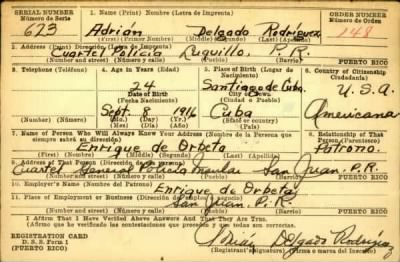 SERIAL NUMBER 1. Name (Print) Nombre (Letra de Imprenta) ORDER NUMBER
Número de Serie Número de Orden
623 Adrián Delgado Rodríguez 148
(First) (Nombre) (Middle) (Segundo) (Last) (Apellido)
2. Address (Print) Dirección (Letra de Imprenta)
Cuartel Policía Luquillo, P. R.
(Number and street) (Número y calle) (City) (Pueblo) (Barrio) PUERTO RICO
3. Telephone (Teléfono) 4. Age in Years (Edad) 5. Place of Birth (Lugar de Nacimiento) 6. Country of Citizenship (Ciudadanía)
24 Santiago de Cuba. U. S. A
Date of Birth (Fecha Nacimiento) City or Town (Ciudad o Pueblo)
Sept. 8 1916 Cuba Americana
(Number) (Número) (Mo.) (Day) (Yr.)
(Mes) (Día) (Año)
7. Name of Person Who Will Always Know Your Address (Nombre de la Persona que siempre sabrá su dirección) 8. Relationship of That Person (Parentesco)
Enrique de Orbeta Patrono.
(First) (Nombre) (Middle) (Segundo) (Last) (Apellido)
9. Address of That Person (Dirección de esa persona)
Cuartel General Policía Insular San Juan, P.R.
(Number and street) (Número y calle) (City) (Pueblo) (Barrio) PUERTO RICO
10. Employer's Name (Nombre del Patrono)
Enrique de Orbeta
11. Place of Employment or Business (Dirección del empleo o sitio de trabajo)
San Juan, P. R.
(Number and street) (Número y calle) (City) (Pueblo) (Barrio) PUERTO RICO
I Affirm That I Have Verified Above Answers And That They Are True.
(Afirmo que he verificado las contestaciones que preceden y que son todas ciertas)
REGISTRATION CARD
D. S. S. Form 1 Adrián Delgado Rodríguez
(Revised) (Registrant's signature) (Firma o marca del Inscrito)